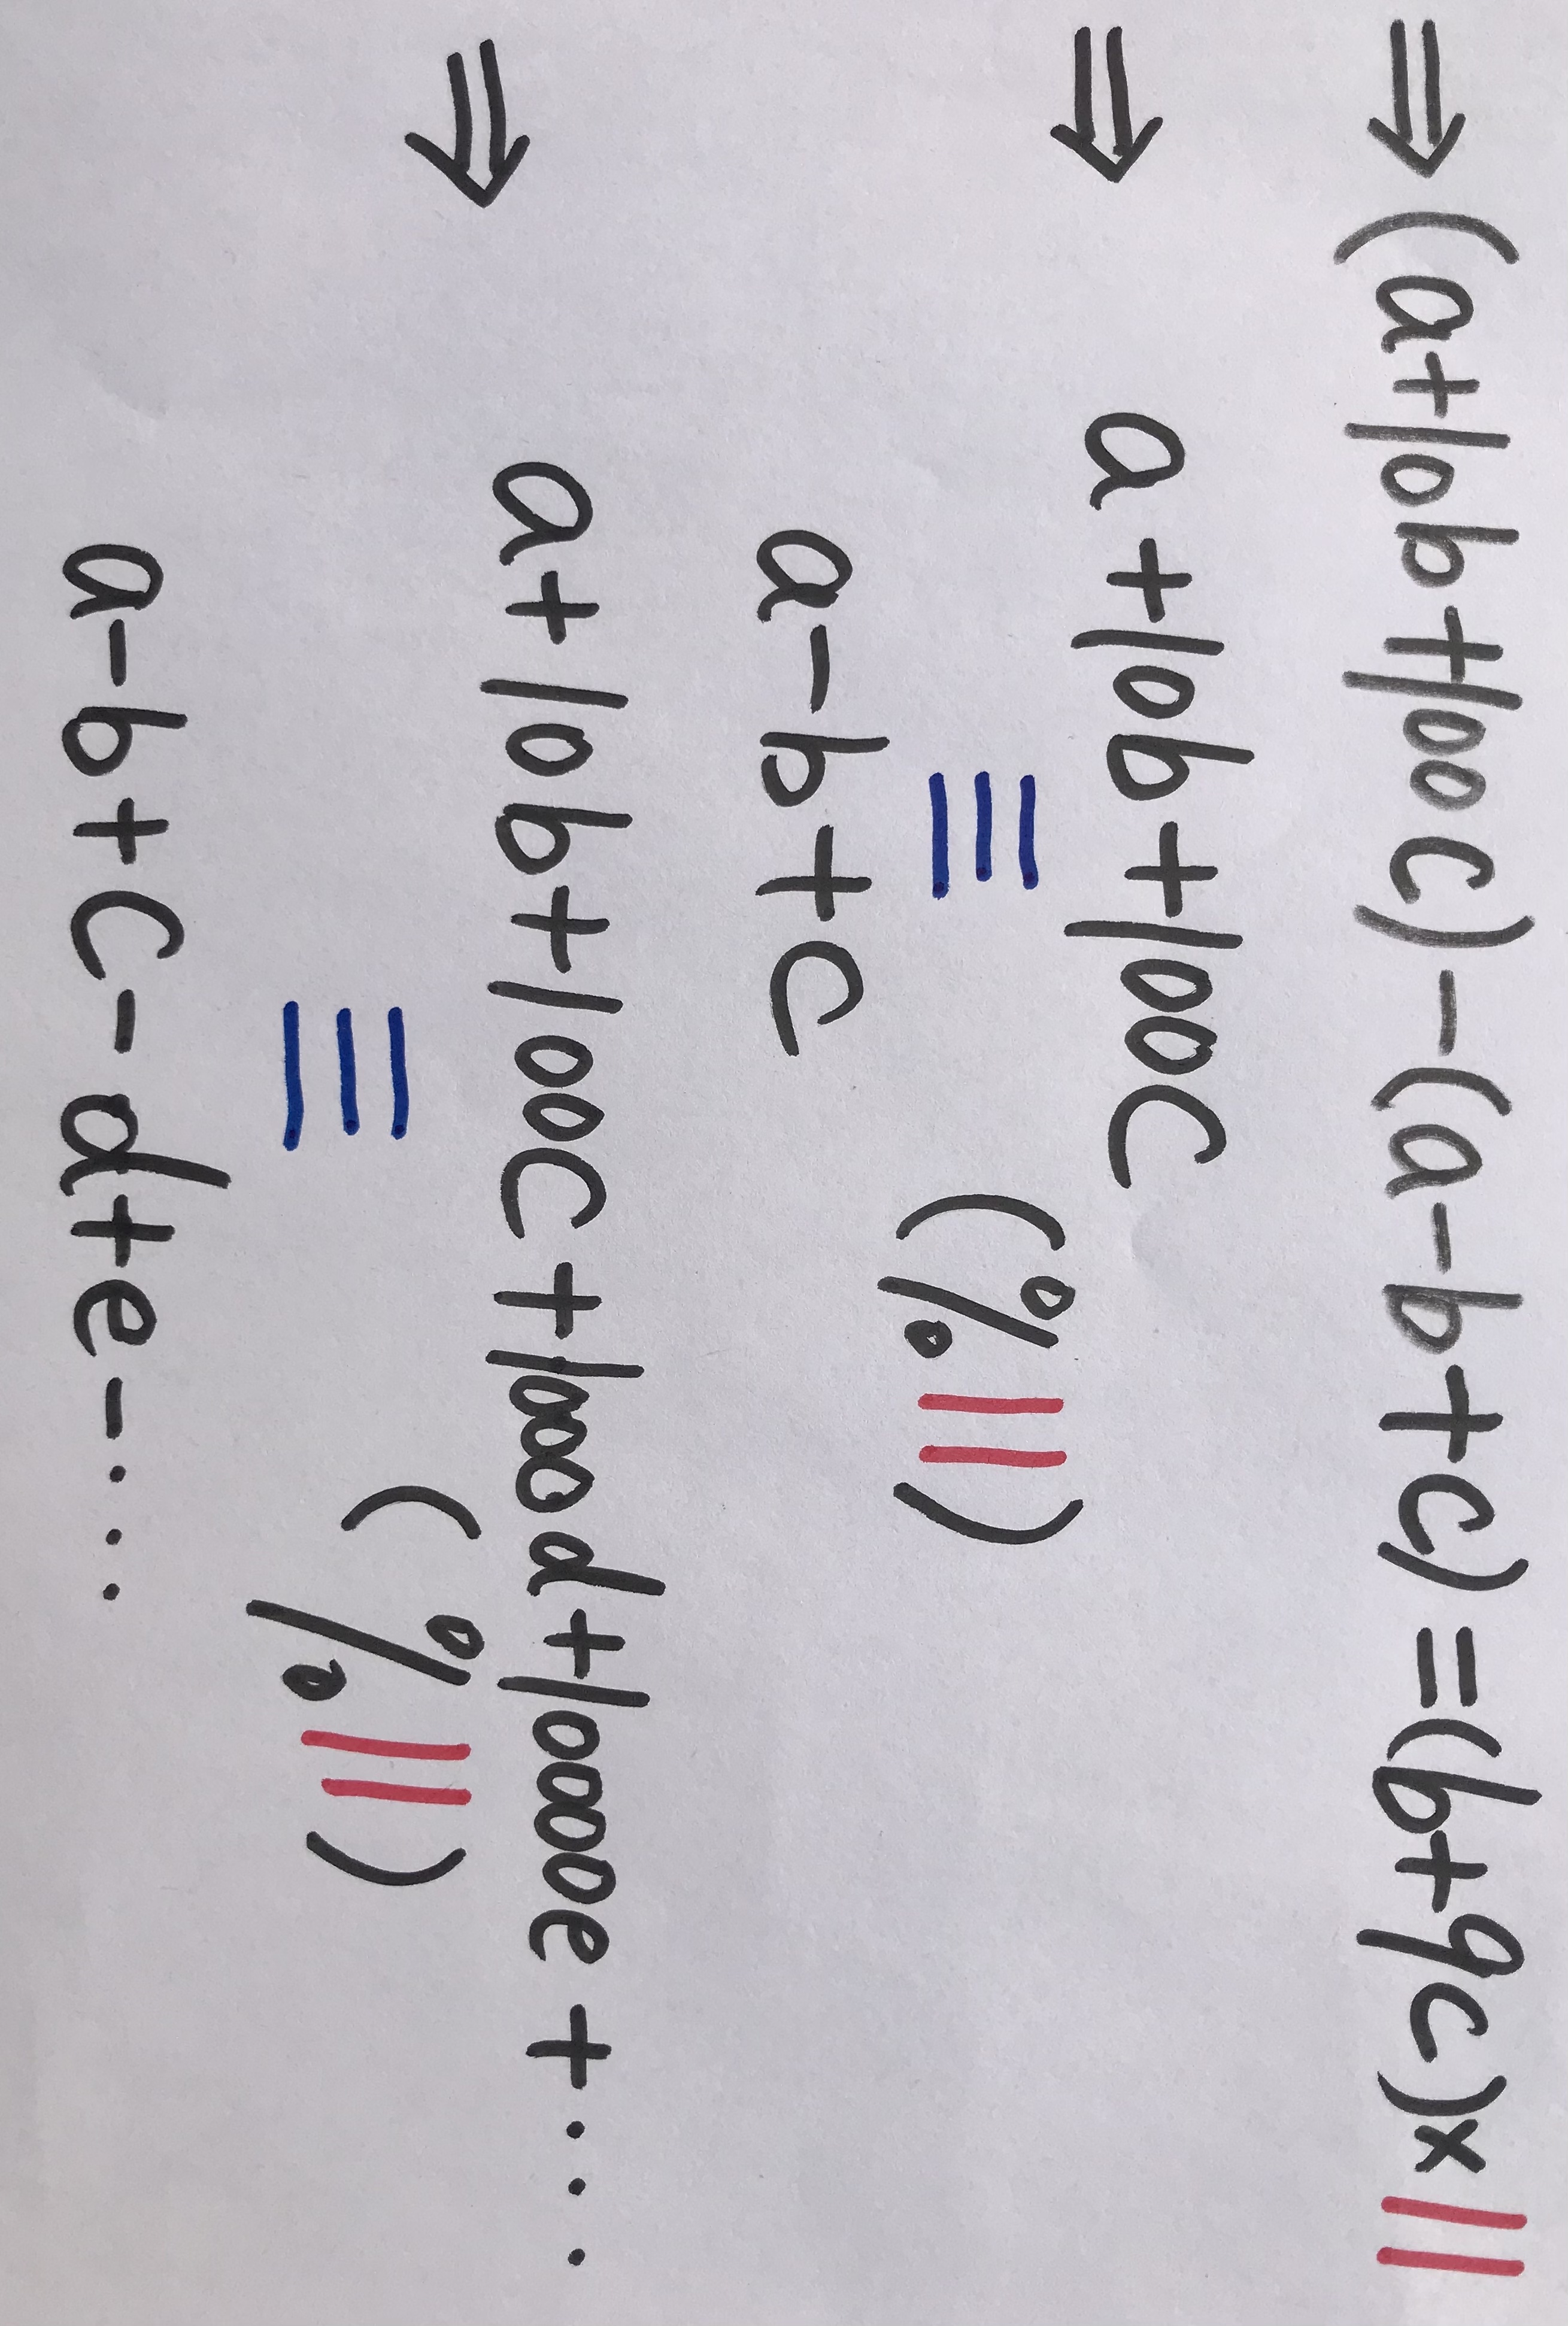 ⇒(a+10b+100c)-(a-b+c)=(b+9c)×11
⇒ a+10b+100c
≡ (%11)
a-b+c
⇒ a+10b+100c+1000d+10000e+···
≡ (%11)
a-b+c-d+e-···